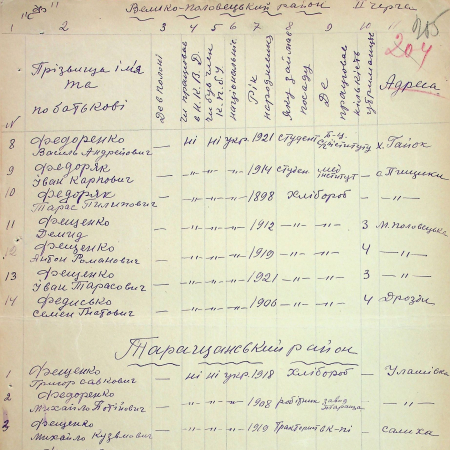 Велико-Половецький район II черга
204
1 2 3 4 5 6 7 8 9 10 11
№ Прізвища ім'я та по батькові До в полоні чи працював в Н.К.В.Д. чи був член К.П.б.У національність Рік народження Яку займав посаду Де працював кількість утриманців Адреса
8 Федоренко Василь Андрейович — ні ні укр. 1921 студент інституту х. Гайок
9 Федоряк Іван Карпович — -"- -"- -"- 1914 студен Мед інститут — с Пищики
10 Федоряк Тарас Пилипович — -"- -"- -"- 1898 Хлібороб — -"-
11 Фещенко Демид — -"- -"- -"- 1912 -"- -"- 3 М. Половецьке
12 Фещенко Антон Романович — -"- -"- -"- 1919 -"- -"- 4 -"-
13 Фещенко Іван Тарасович — -"- -"- -"- 1921 -"- -"- 3 -"-
14 Федисько Семен Гнатович — -"- -"- -"- 1906 -"- -"- 4 Дрозди
Таращанський район
1 Фещенко Григор Савкович — ні ні укр 1918 Хлібороб — Улашівка
2 Федоренко Михайло — -"- -"- -"- 1908 робітник завод Тараща — -"-
3 Фещенко Михайло Кузьмович — -"- -"- -"- 1919 Тракторист — салиха